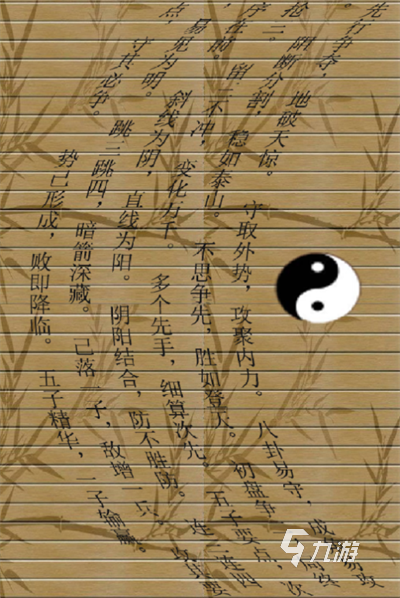 先行争夺，地破天惊。守取外势，攻聚内力。八卦易守，成角易攻
抢三。阻断分割，稳如泰山。不思争先，胜如登天。初盘争
序在前。留三不冲，变化万千。多个先手，细算次先。五子要点，次
易见为明。斜线为阴，直线为阳。阴阳结合，防不胜防。连三连四
点，守其必争。跳三跳四，暗箭深藏。己落一子，敌增一兵，攻其要
势己形成，败即降临。五子精华，一子输赢。
九游